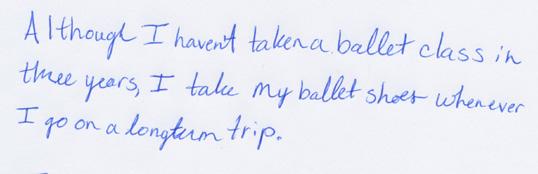 Although I haven't taken a ballet class in
three years, I take my ballet shoes whenever
I go on a longterm trip.